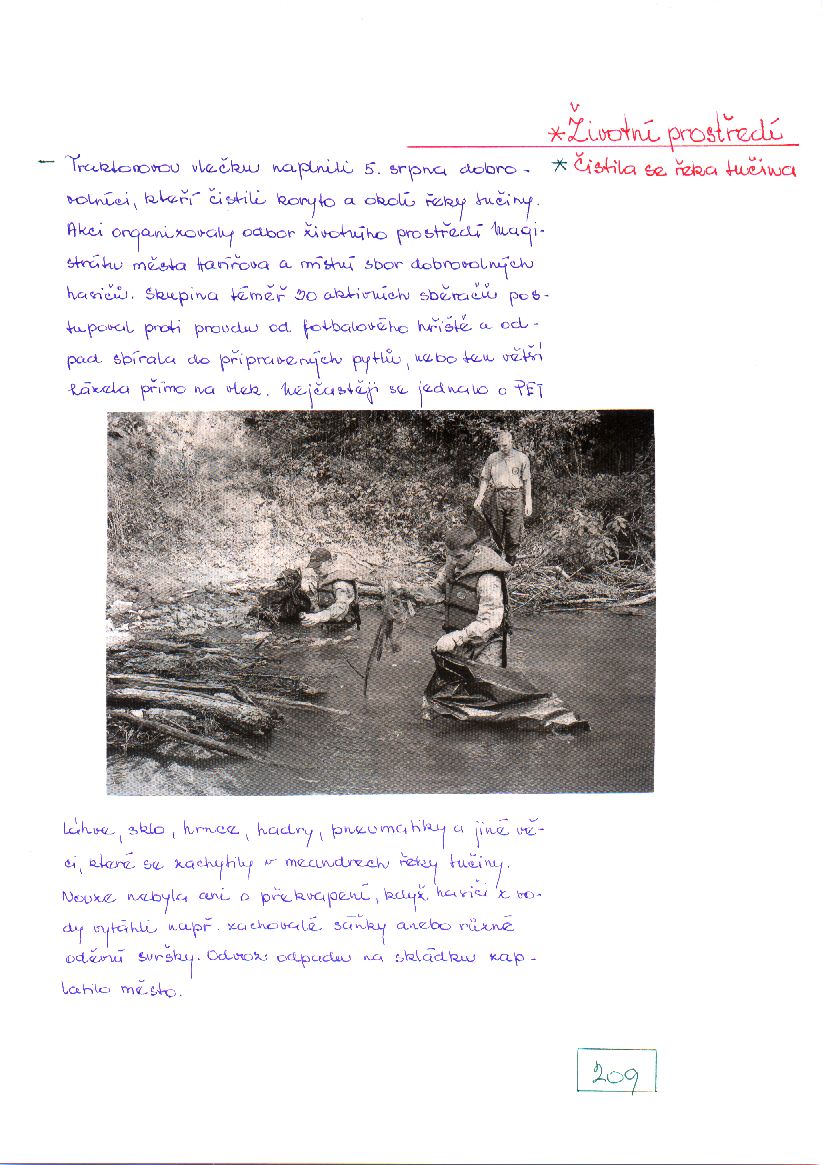 *Životní prostředí
* Čistila se řeka Lučina
– Traktorovou vlečku naplnili 5. srpna dobro-
volníci, kteří čistili koryto a okolí řeky Lučiny.
Akci organizovaly odbor životního prostředí Magi-
strátu města Havířova a místní sbor dobrovolných
hasičů. Skupina téměř 30 aktivních sběračů pos-
tupoval proti proudu od fotbalového hřiště a od-
pad sbírala do připravených pytlů, nebo ten větší
házela přímo na vlek. Nejčastěji se jednalo o PET
láhve, sklo, hrnce, hadry, pneumatiky a jiné vě-
ci, které se zachytily v meandrech řeky Lučiny.
Nouze nebyla ani o překvapení, když hasiči z vo-
dy vytáhli např. zachovalé sáňky anebo různé
oděvní svršky. Odvoz odpadu na skládku zap-
latilo město.
209